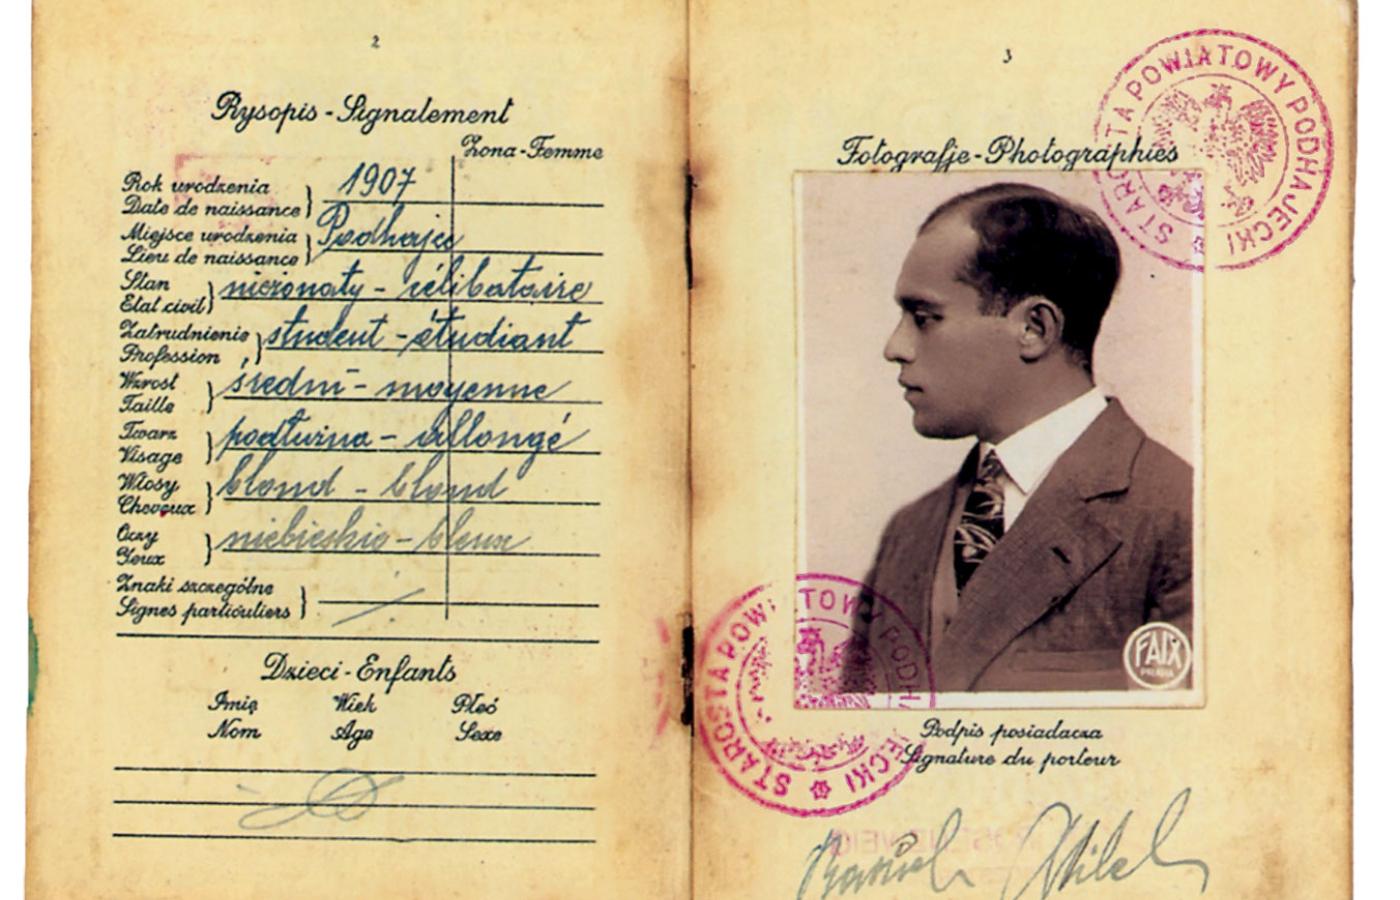 2
Rysopis - Signalement
Żona - Femme
Rok urodzenia
Date de naissance
1907
Miejsce urodzenia
Lieu de naissance
Podhajce
Stan
Etat civil
nieżonaty - célibataire
Zatrudnienie
Profession
student - étudiant
Wzrost
Taille
średni - moyenne
Twarz
Visage
podłużna - allongé
Włosy
Cheveux
blond - blond
Oczy
Yeux
niebieskie - bleux
Znaki szczególne
Signes particuliers
Dzieci - Enfants
Imię Wiek Płeć
Nom Age Sexe
3
STAROSTA POWIATOWY PODHAJECKI
Fotografje - Photographies
FAIX
STAROSTA POWIATOWY PODHAJECKI
Podpis posiadacza
Signature du porteur